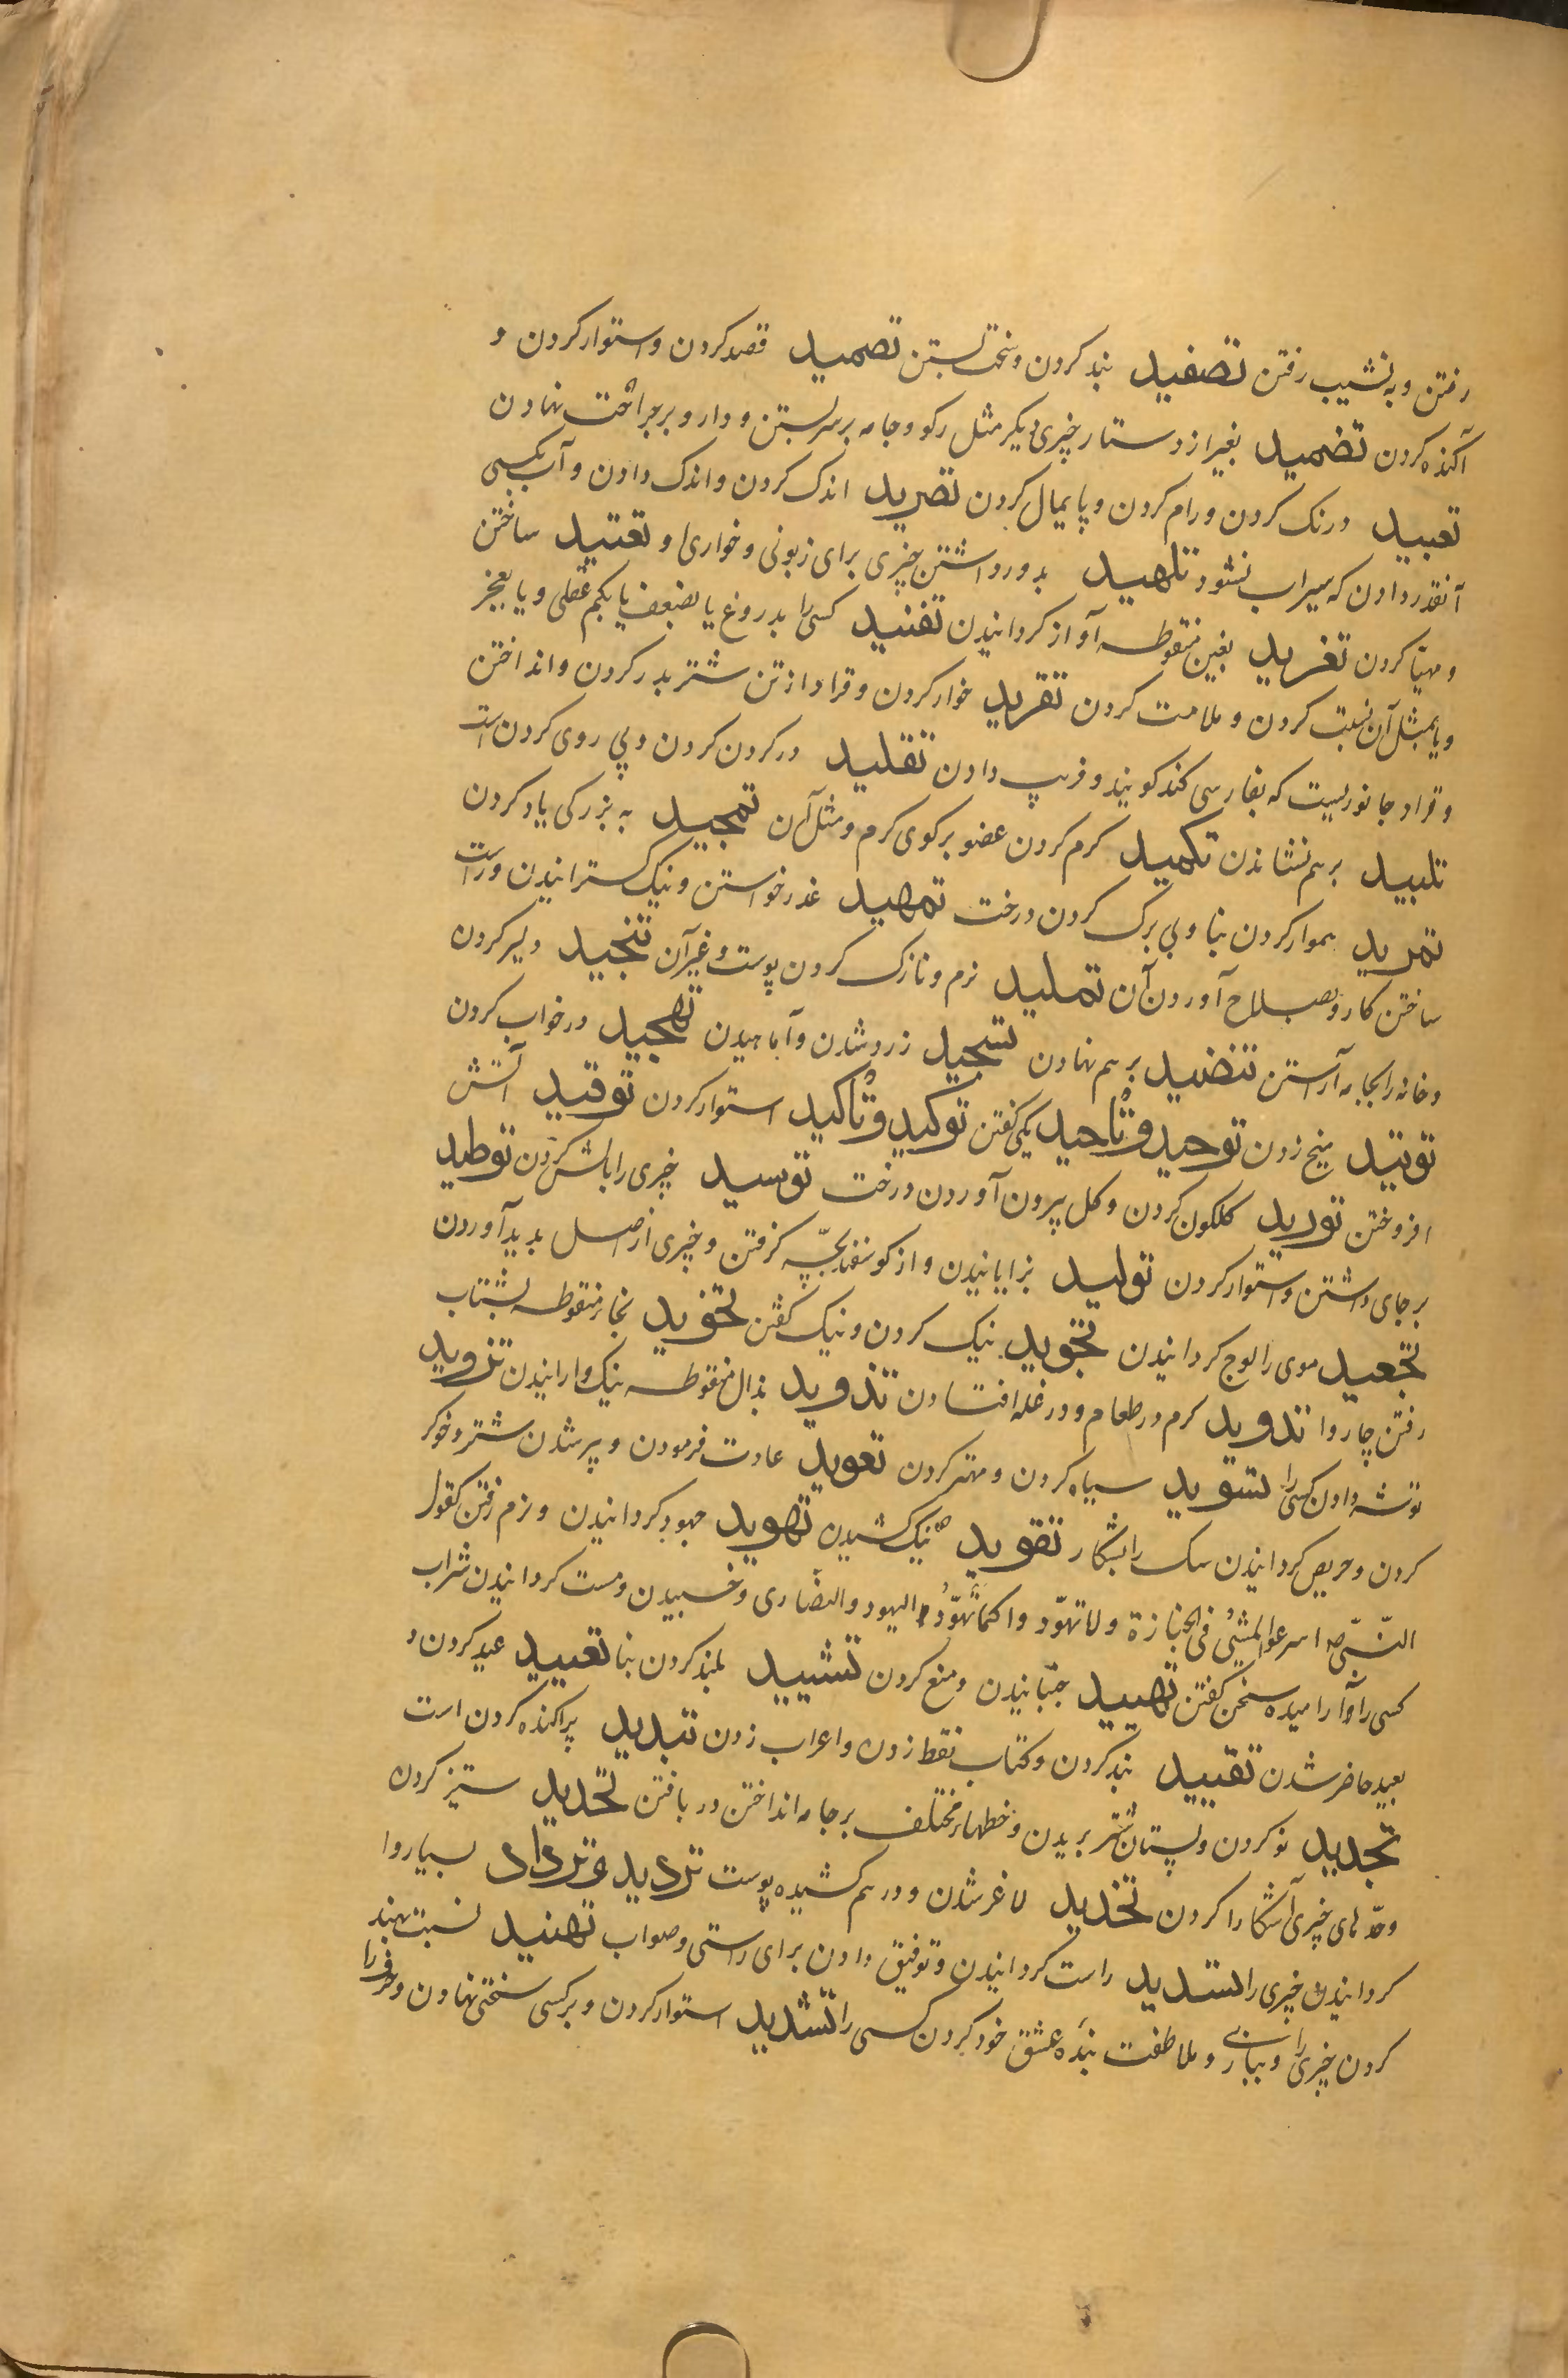 رفتن و به نشیب رفتن تصفید بند کردن و سخت بستن تصمید قصد کردن و استوار کردن و
آکنده کردن تضمید بغیر از دستار چیزی دیگر مثل رکو و جامه بر سر بستن و دارو بر جراحت نهادن
تعبید درنک کردن و رام کردن و پایمال کردن تصرید اندک کردن و اندک دادن و آب بکسی
آنقدر دادن که سیراب نشود تلهید بدور داشتن چیزی برای زبونی و خواری او تعتید ساختن
و مهیا کردن تغرید بغین منقوطه آواز کردانیدن تفنید کسی را بدروغ یا بضعف یا بکم عقلی و یا بعجز
و یا بمثل آن نسبت کردن و ملامت کردن تقرید خوار کردن و قراد از تن شتر بدر کردن و انداختن
و قراد جانوریست که بفارسی کنه کویند و فریب دادن تقلید در کردن کردن و پی روی کردن است
تلبید بر هم نشاندن تکمید کرم کردن عضو بر کوی کرم و مثل آن تمجید به بزرکی یاد کردن
تمرید هموار کردن بنا و بی برک کردن درخت تمهید عذر خواستن و نیک کسترانیدن و راست
ساختن کار و بصلاح آوردن آن تملید نرم و نازک کردن پوست و غیر آن تنجید دلیر کردن
و خانه را بجامه آراستن تنضید بر هم نهادن تهجید در خواب کردن
توتید میخ زدن توحید و تأحید یکی کفتن توکید و تأکید استوار کردن توقید آتش
افروختن تورید کلکون کردن و کل بیرون آوردن درخت توسید چیزی را بالش کردن توطید
بر جای داشتن و استوار کردن تولید بزایانیدن و از کوسفند بچه کرفتن و چیزی از اصل بدید آوردن
تجعید موی را لوج کردانیدن تجوید نیک کردن و نیک کفتن تخوید بخاء منقوطه بشتاب
رفتن چاروا تدوید کرم در طعام و در غله افتادن تذوید بذال منقوطه نیک وارانیدن تزوید
توشه دادن کسی را تسوید سیاه کردن و مهتر کردن تعوید عادت فرمودن و پیر شدن شتر و خوکر
کردن و حریص کردانیدن سک را بشکار تقوید نیک کشیدن تهوید جهود کردانیدن و نرم رفتن کقول
النبی صه اسرعوا المشی فی الجنازة و لا تهوّد واکما تهوّد الیهود و النصاری و خسبیدن و مست کردانیدن شراب
کسی را و آرامیده سخن کفتن تهیید جنبانیدن و منع کردن تشیید بلند کردن بنا تعیید عید کردن و
بعید حاضر شدن تقیید بند کردن و کتاب نقط زدن و اعراب زدن تبدید پراکنده کردن است
تجدید نو کردن و پستان شتر بریدن و خطهاء مختلف بر جامه انداختن در بافتن تحدید ستیز کردن
و حدهای چیزی آشکارا کردن تخدید لاغر شدن و در هم کشیده پوست تردید و ترداد بسیار وا
کردانیدن چیزی را تسدید راست کردانیدن و توفیق دادن برای راستی و صواب تهنید نسبت بهند
کردن چیزی را و ببازی و ملاطفت بنده عشق خود کردن کسی را تشدید استوار کردن و بر کسی سختی نهادن و حرف را